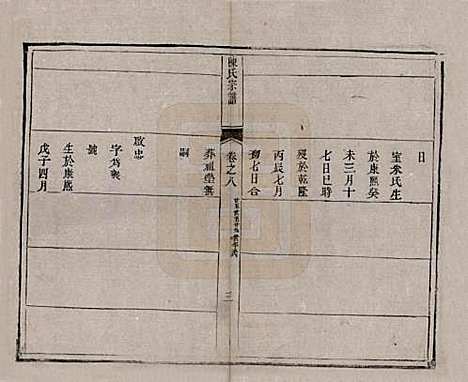 日
室朱氏生
於康熙癸
未三月十
七日巳時
歿於乾隆
丙辰七月
初七日合
陳氏宗譜
卷之八
三
葬祖塋無
嗣
啟忠
字為襄
號
生於康熙
戊子四月